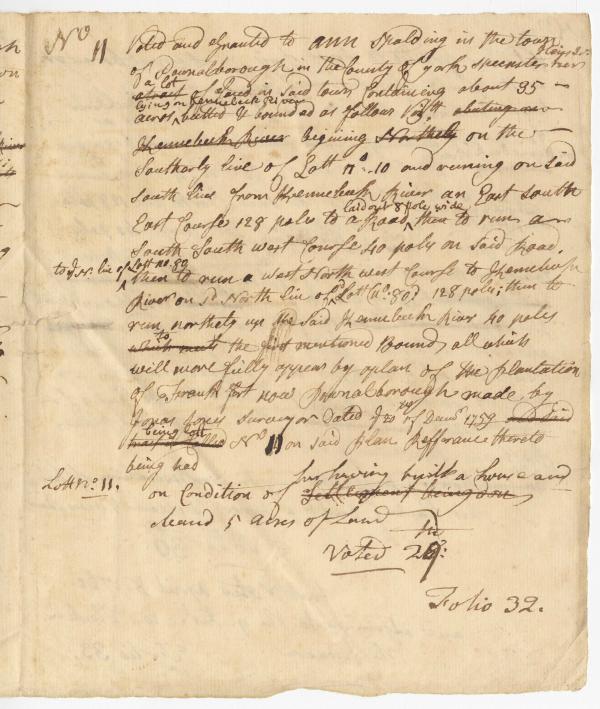 No 11 Voted and Granted to Ann Spalding in the town
of Pownalborough in the County of York Spinster &
a Lot
a tract of Land in said town Containing about 35
lying on Kennebeck River
acres butted & bounded as follows Viz.t abuting on
Kennebeck River begining Northely on the
Southerly line of Lott No. 10 and running on said
South line from Kennebeck River an East South
laid out 8 pole wide
East Course 128 poles to a Road, then to run a
South South west Course 40 poles on said Road,
to ye N. line of Lott no. 80
then to run a West North west Course to Kennebeck
River on sd. North line of sd Lott (No. 80) 128 poles; then to
run northely up the said Kennebeck River 40 poles
to
which meets the first mentioned Bounds all which
will more fully appear by a plan of the plantation
of Frankfort now Pownalborough made by
Jonas Jones Surveyor Dated ye 20th of Decemr 1759
being Lott
No 11 on said plan Refferance thereto
being had
Lott No. 11.
on Condition of her having built a house and
Settlement being don
cleared 5 acres of Land
Voted
Folio 32.